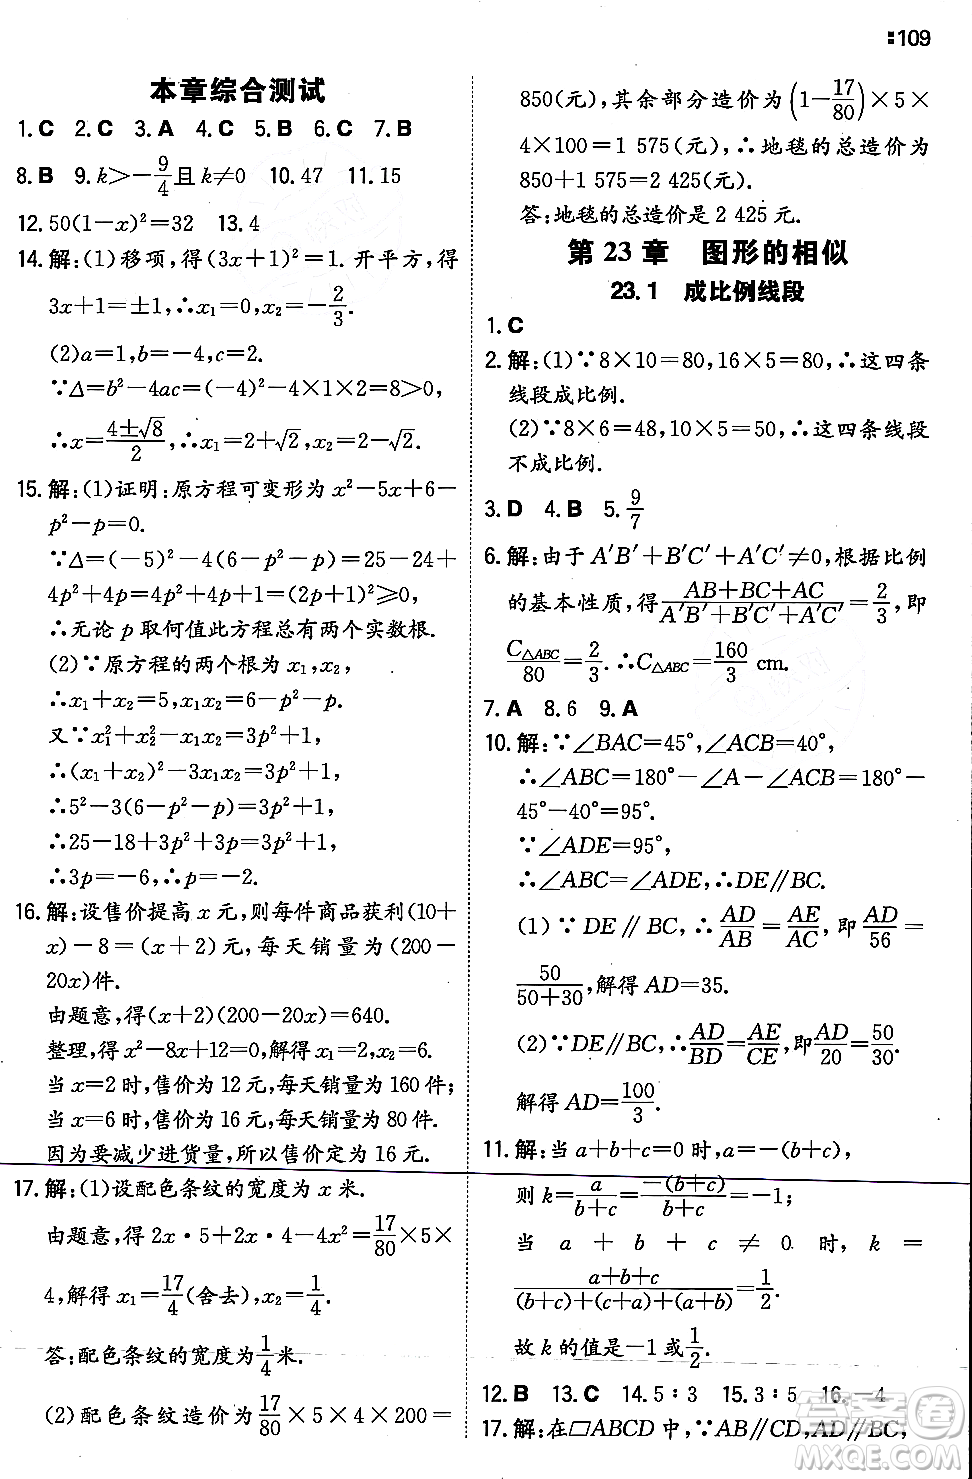 109
本章综合测试
1.C 2.C 3.A 4.C 5.B 6.C 7.B
8.B 9.k>-9/4且k≠0 10.47 11.15
12.50(1-x)²=32 13.4
14.解:(1)移项,得(3x+1)²=1.开平方,得
3x+1=±1,∴x₁=0,x₂=-2/3.
(2)a=1,b=-4,c=2.
∵Δ=b²-4ac=(-4)²-4×1×2=8>0,
∴x=(4±√8)/2,∴x₁=2+√2,x₂=2-√2.
15.解:(1)证明:原方程可变形为x²-5x+6-
p²-p=0.
∵Δ=(-5)²-4(6-p²-p)=25-24+
4p²+4p=4p²+4p+1=(2p+1)²≥0,
∴无论p取何值此方程总有两个实数根.
(2)∵原方程的两个根为x₁,x₂,
∴x₁+x₂=5,x₁x₂=6-p²-p.
又∵x₁²+x₂²-x₁x₂=3p²+1,
∴(x₁+x₂)²-3x₁x₂=3p²+1,
∴5²-3(6-p²-p)=3p²+1,
∴25-18+3p²+3p=3p²+1,
∴3p=-6,∴p=-2.
16.解:设售价提高x元,则每件商品获利(10+
x)-8=(x+2)元,每天销量为(200-
20x)件.
由题意,得(x+2)(200-20x)=640.
整理,得x²-8x+12=0,解得x₁=2,x₂=6.
当x=2时,售价为12元,每天销量为160件;
当x=6时,售价为16元,每天销量为80件.
因为要减少进货量,所以售价为16元.
17.解:(1)设配色条纹的宽度为x米.
由题意,得2x·5+2x·4-4x²=17/80×5×
4,解得x₁=17/4(舍去),x₂=1/4.
答:配色条纹的宽度为1/4米.
(2)配色条纹造价为17/80×5×4×200=
850(元),其余部分造价为(1-17/80)×5×
4×100=1 575(元),∴地毯的总造价为
850+1 575=2 425(元).
答:地毯的总造价是2 425元.
第23章 图形的相似
23.1 成比例线段
1.C
2.解:(1)∵8×10=80,16×5=80,∴这四条
线段成比例.
(2)∵8×6=48,10×5=50,∴这四条线段
不成比例.
3.D 4.B 5.9/7
6.解:由于A′B′+B′C′+A′C′≠0,根据比例
的基本性质,得(AB+BC+AC)/(A′B′+B′C′+A′C′)=2/3,即
C△ABC/80=2/3.∴C△ABC=160/3 cm.
7.A 8.6 9.A
10.解:∵∠BAC=45°,∠ACB=40°,
∴∠ABC=180°-∠A-∠ACB=180°-
45°-40°=95°.
∵∠ADE=95°,
∴∠ABC=∠ADE,∴DE∥BC.
(1)∵DE∥BC,∴AD/AB=AE/AC,即AD/56=
50/(50+30),解得AD=35.
(2)∵DE∥BC,∴AD/BD=AE/CE,即AD/20=50/30.
解得AD=100/3.
11.解:当a+b+c=0时,a=-(b+c),
则k=a/(b+c)=-(b+c)/(b+c)=-1;
当a+b+c≠0时,k=
(a+b+c)/((b+c)+(a+c)+(a+b))=1/2.
故k的值是-1或1/2.
12.B 13.C 14.5∶3 15.3∶5 16.-4
17.解:在▱ABCD中,∵AB∥CD,AD∥BC,
答案圈
MXQE.COM